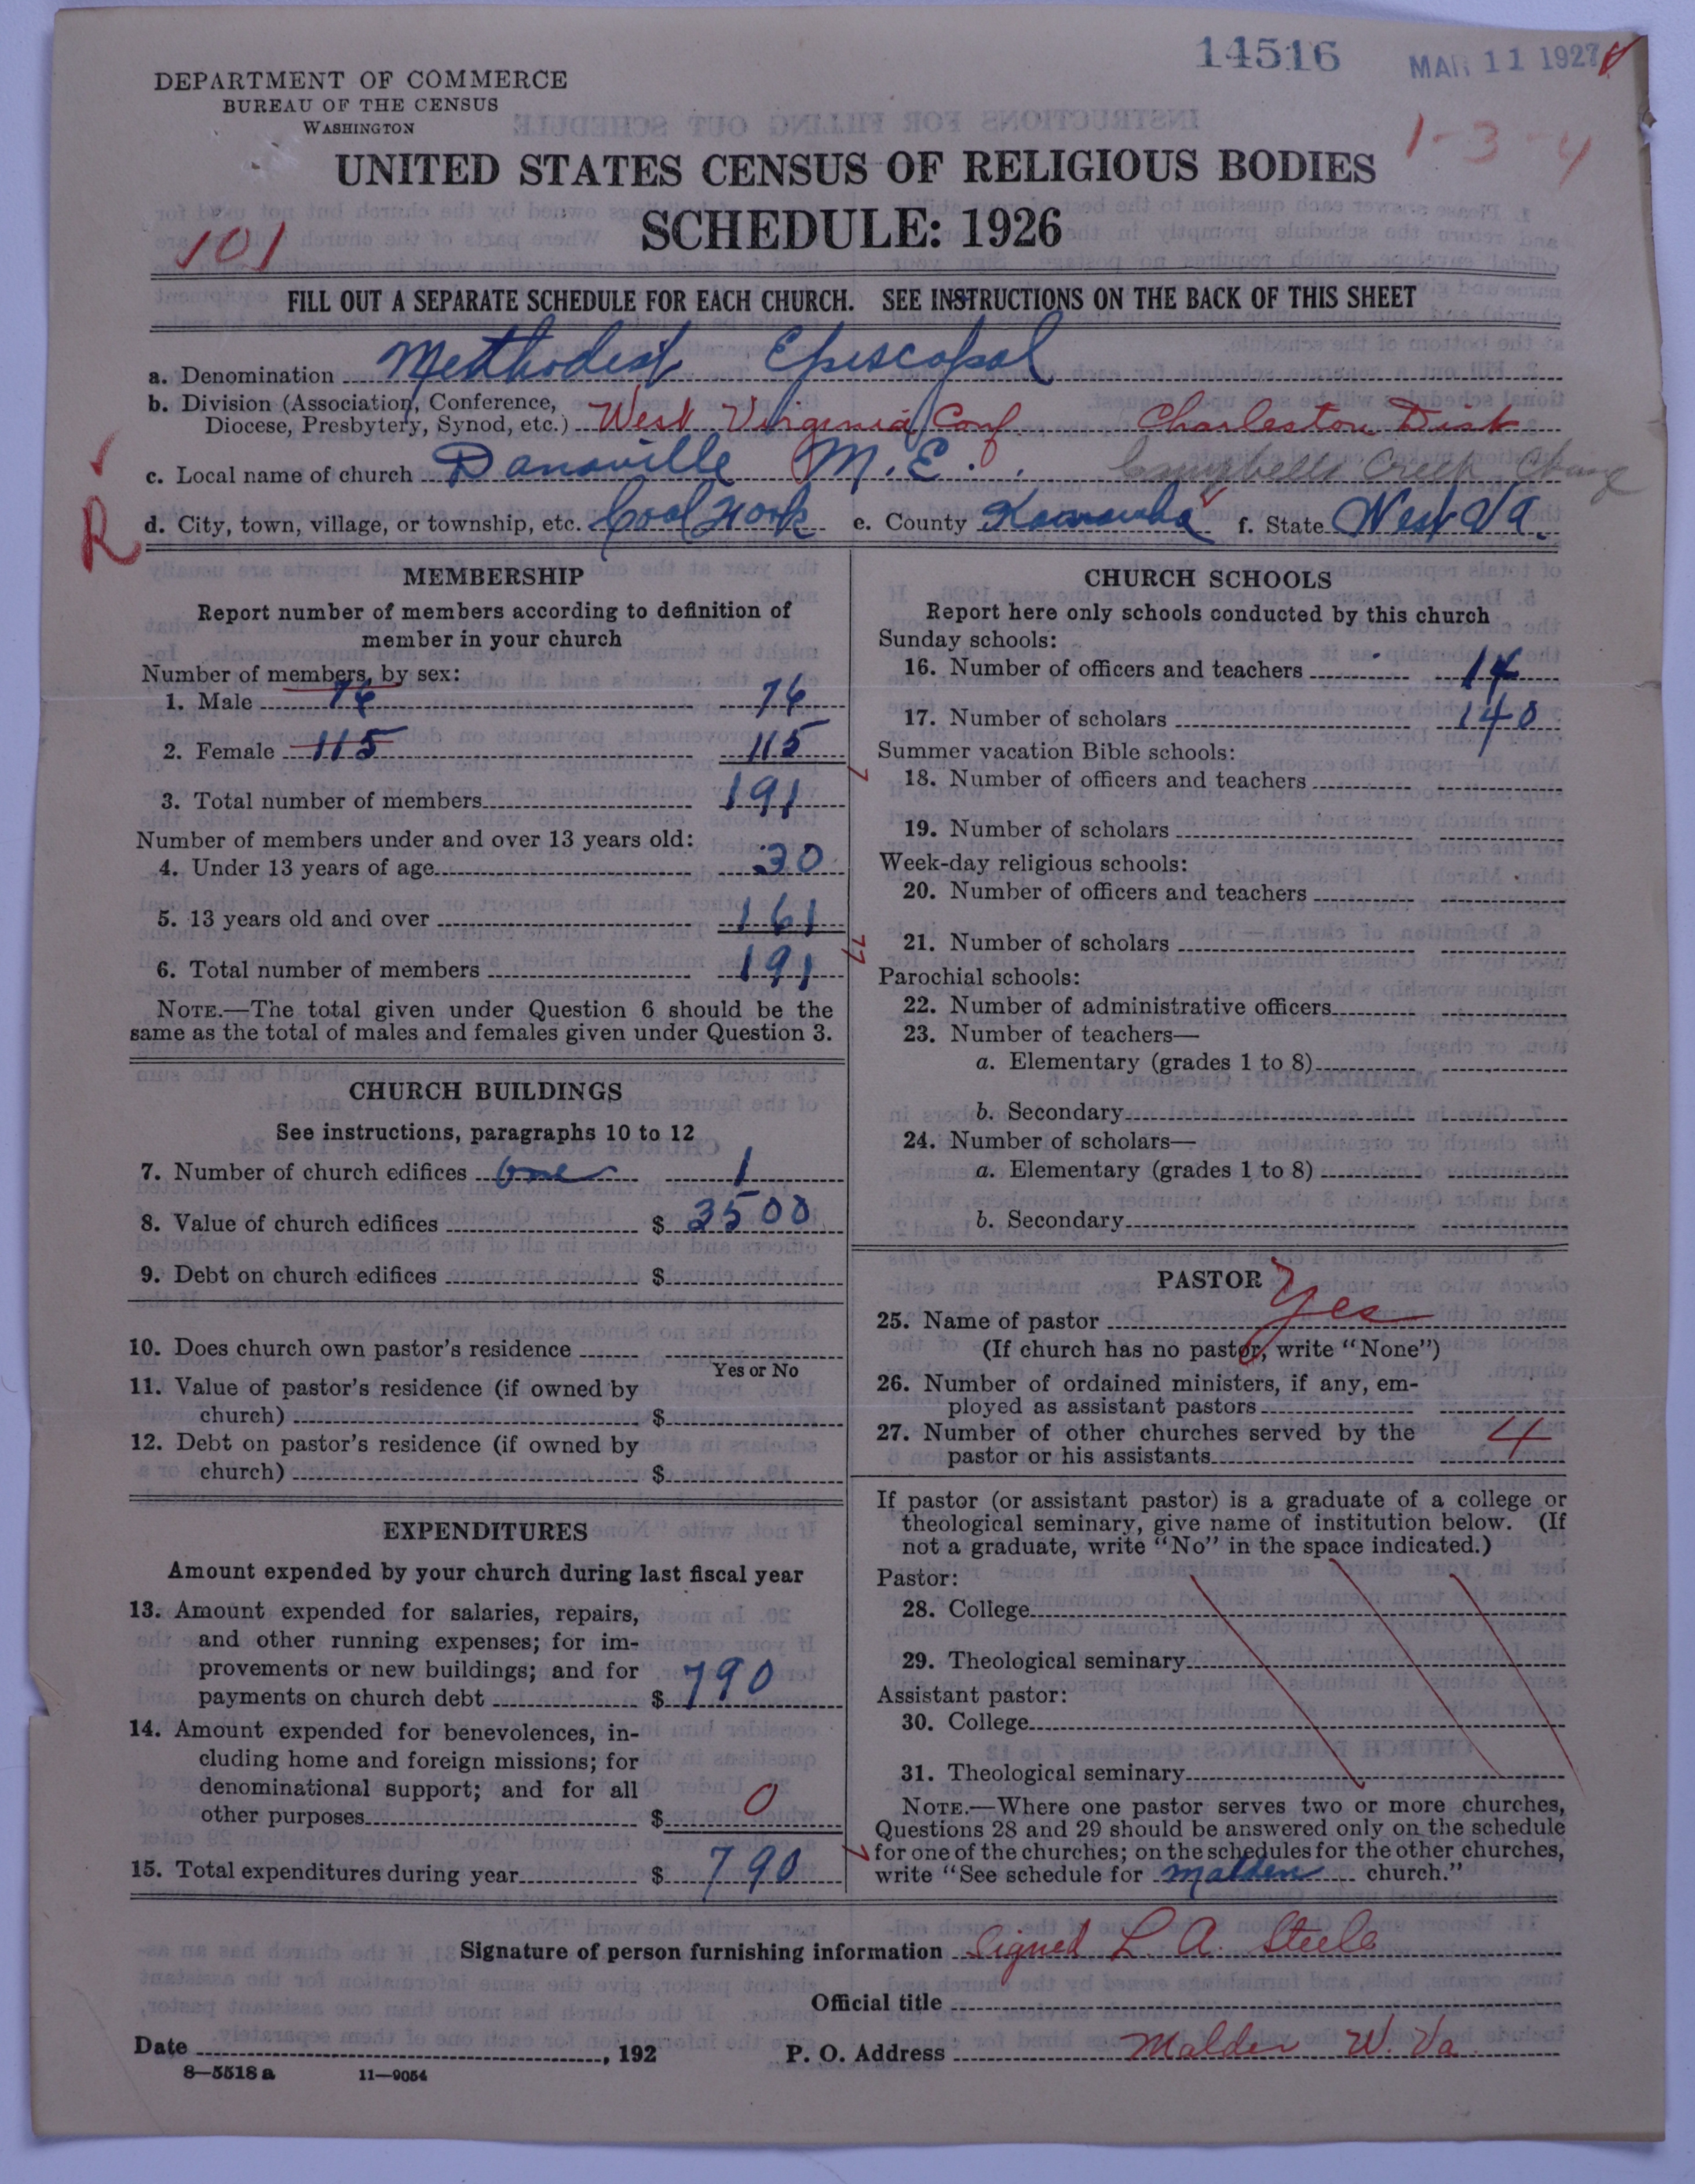 14516 MAR 11 1927
DEPARTMENT OF COMMERCE
BUREAU OF THE CENSUS
WASHINGTON
1-3-4
UNITED STATES CENSUS OF RELIGIOUS BODIES
SCHEDULE: 1926
101
FILL OUT A SEPARATE SCHEDULE FOR EACH CHURCH. SEE INSTRUCTIONS ON THE BACK OF THIS SHEET
a. Denomination Methodist Episcopal
b. Division (Association, Conference,
Diocese, Presbytery, Synod, etc.) West Virginia Conf. Charleston Dist
c. Local name of church Danaville M.E. Campbells Creek Charge
R
d. City, town, village, or township, etc. Coal Fork e. County Kanawha f. State West Va.
MEMBERSHIP
Report number of members according to definition of
member in your church
Number of members by sex:
1. Male 76 76
2. Female 115 115
3. Total number of members 191
Number of members under and over 13 years old:
4. Under 13 years of age 30
5. 13 years old and over 161
6. Total number of members 191
NOTE.—The total given under Question 6 should be the
same as the total of males and females given under Question 3.
CHURCH BUILDINGS
See instructions, paragraphs 10 to 12
7. Number of church edifices one 1
8. Value of church edifices $ 3500
9. Debt on church edifices $
10. Does church own pastor's residence
Yes or No
11. Value of pastor's residence (if owned by
church) $
12. Debt on pastor's residence (if owned by
church) $
EXPENDITURES
Amount expended by your church during last fiscal year
13. Amount expended for salaries, repairs,
and other running expenses; for im-
provements or new buildings; and for
payments on church debt $ 790
14. Amount expended for benevolences, in-
cluding home and foreign missions; for
denominational support; and for all
other purposes $ 0
15. Total expenditures during year $ 790
CHURCH SCHOOLS
Report here only schools conducted by this church
Sunday schools:
16. Number of officers and teachers 14
17. Number of scholars 140
Summer vacation Bible schools:
18. Number of officers and teachers
19. Number of scholars
Week-day religious schools:
20. Number of officers and teachers
21. Number of scholars
Parochial schools:
22. Number of administrative officers
23. Number of teachers—
a. Elementary (grades 1 to 8)
b. Secondary
24. Number of scholars—
a. Elementary (grades 1 to 8)
b. Secondary
PASTOR
25. Name of pastor Yes
(If church has no pastor, write "None")
26. Number of ordained ministers, if any, em-
ployed as assistant pastors
27. Number of other churches served by the
pastor or his assistants 4
If pastor (or assistant pastor) is a graduate of a college or
theological seminary, give name of institution below. (If
not a graduate, write "No" in the space indicated.)
Pastor:
28. College
29. Theological seminary
Assistant pastor:
30. College
31. Theological seminary
NOTE.—Where one pastor serves two or more churches,
Questions 28 and 29 should be answered only on the schedule
for one of the churches; on the schedules for the other churches,
write "See schedule for Malden church."
Signature of person furnishing information Signed L. A. Steele
Official title
Date , 192 P. O. Address Malden W. Va
8—5518 a 11—9054